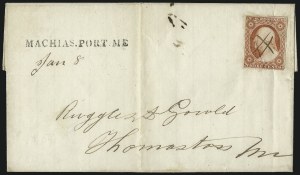 MACHIAS.PORT.ME
Jan 8
Ruggles & Gould
Thomaston Me